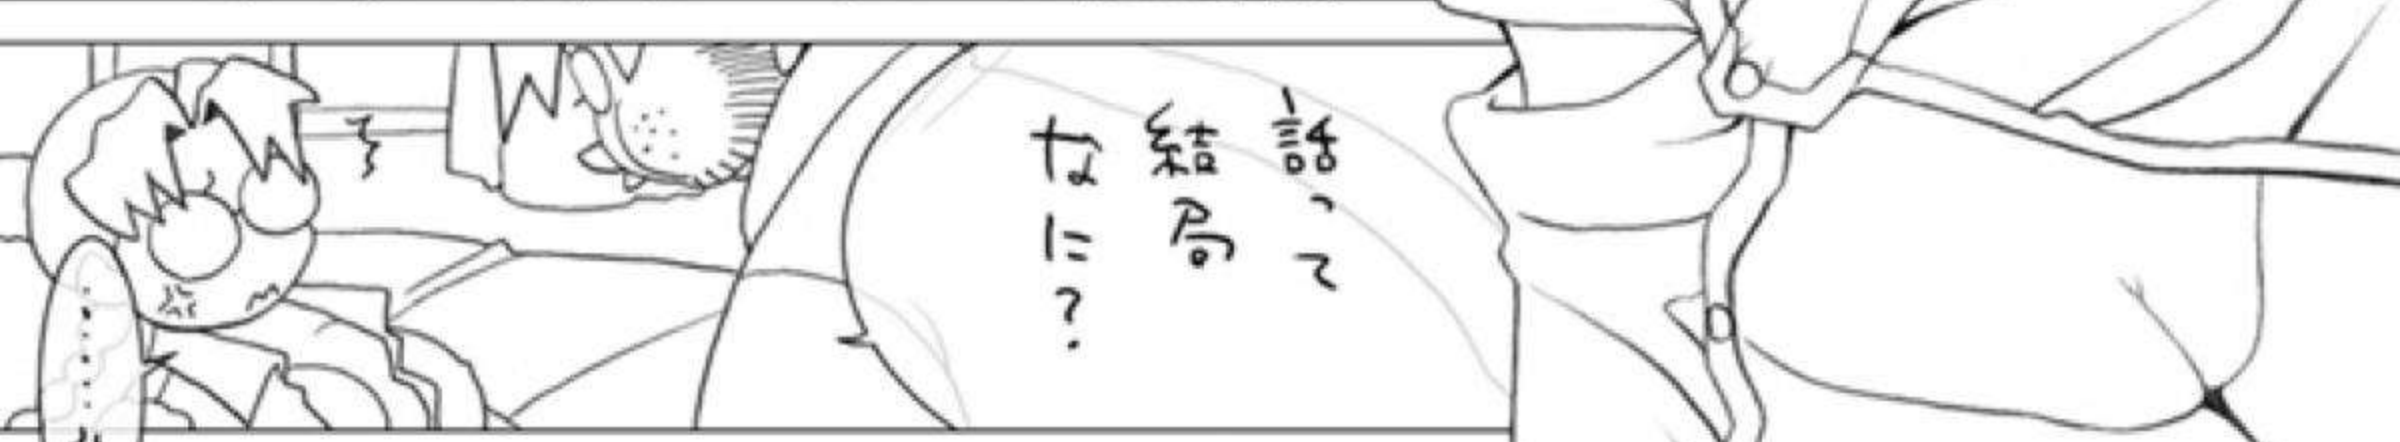 話って
結局
なに？
………